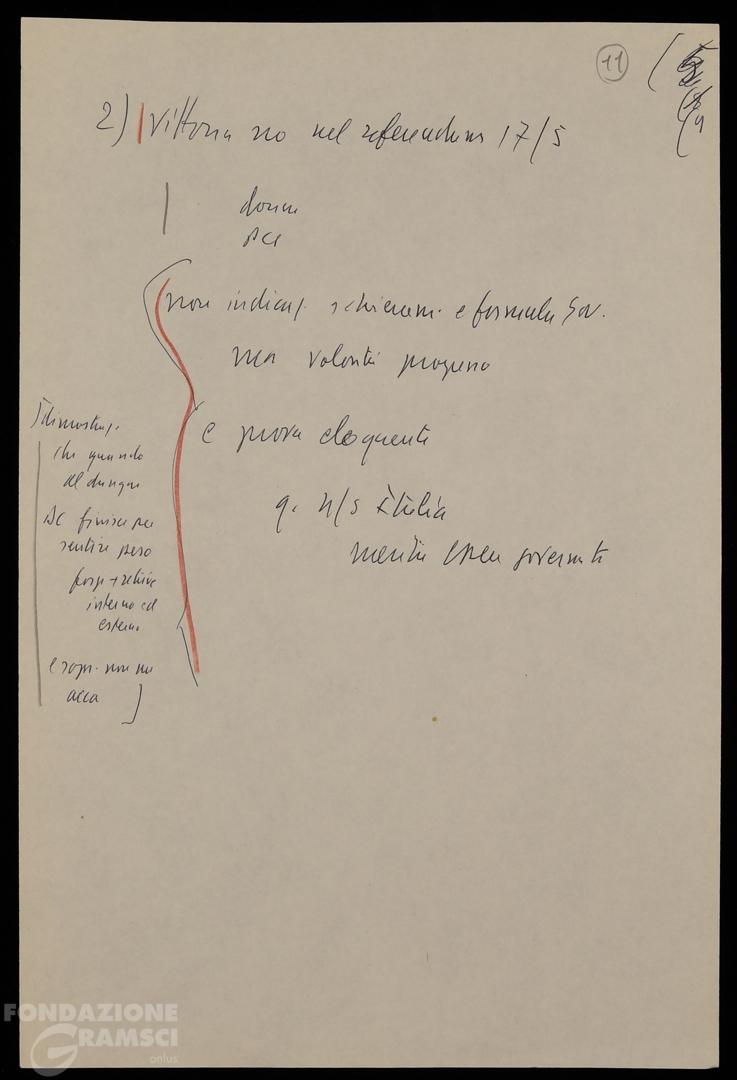 11
2) Vittoria no nel referendum 17/5
donne
PCI
non indicaz. schieram. e formula gov.
ma volontà progresso
e prova eloquente
q. n/s Italia
merita essere governata
[dimostraz.
che quando
al dunque
DC finisce per
sentire peso
forze + retrive
interno ed
esterno
e sopr. non ne
acca ]
FONDAZIONE
GRAMSCI
onlus